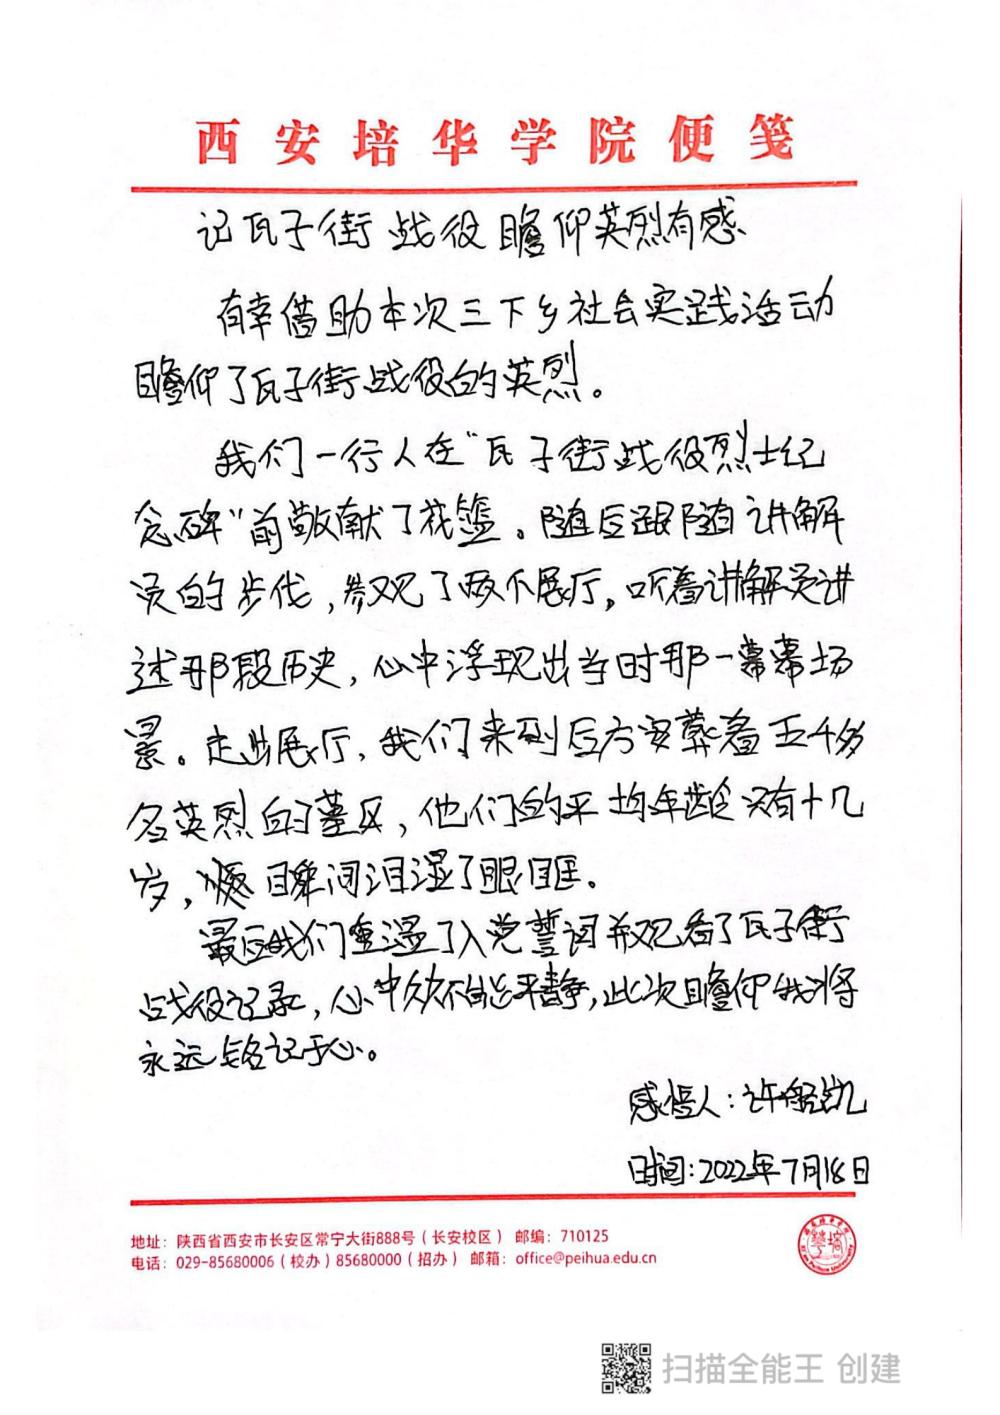 西安培华学院便笺
记瓦子街战役瞻仰英烈有感
有幸借助本次三下乡社会实践活动
瞻仰了瓦子街战役的英烈。
我们一行人在“瓦子街战役烈士纪
念碑”前敬献了花篮。随后跟随讲解
员的步伐,参观了两个展厅,听着讲解员讲
述那段历史,心中浮现出当时那一幕幕场
景。走出展厅,我们来到后方安葬着五千多
名英烈的墓区,他们的平均年龄只有十几
岁,瞬间泪湿了眼眶。
最后我们重温了入党誓词并观看了瓦子街
战役记录,心中久久不能平静,此次瞻仰我将
永远铭记于心。
感悟人:许凯
时间:2022年7月18日
地址:陕西省西安市长安区常宁大街888号(长安校区) 邮编:710125
电话:029-85680006(校办)85680000(招办) 邮箱:office@peihua.edu.cn
扫描全能王 创建